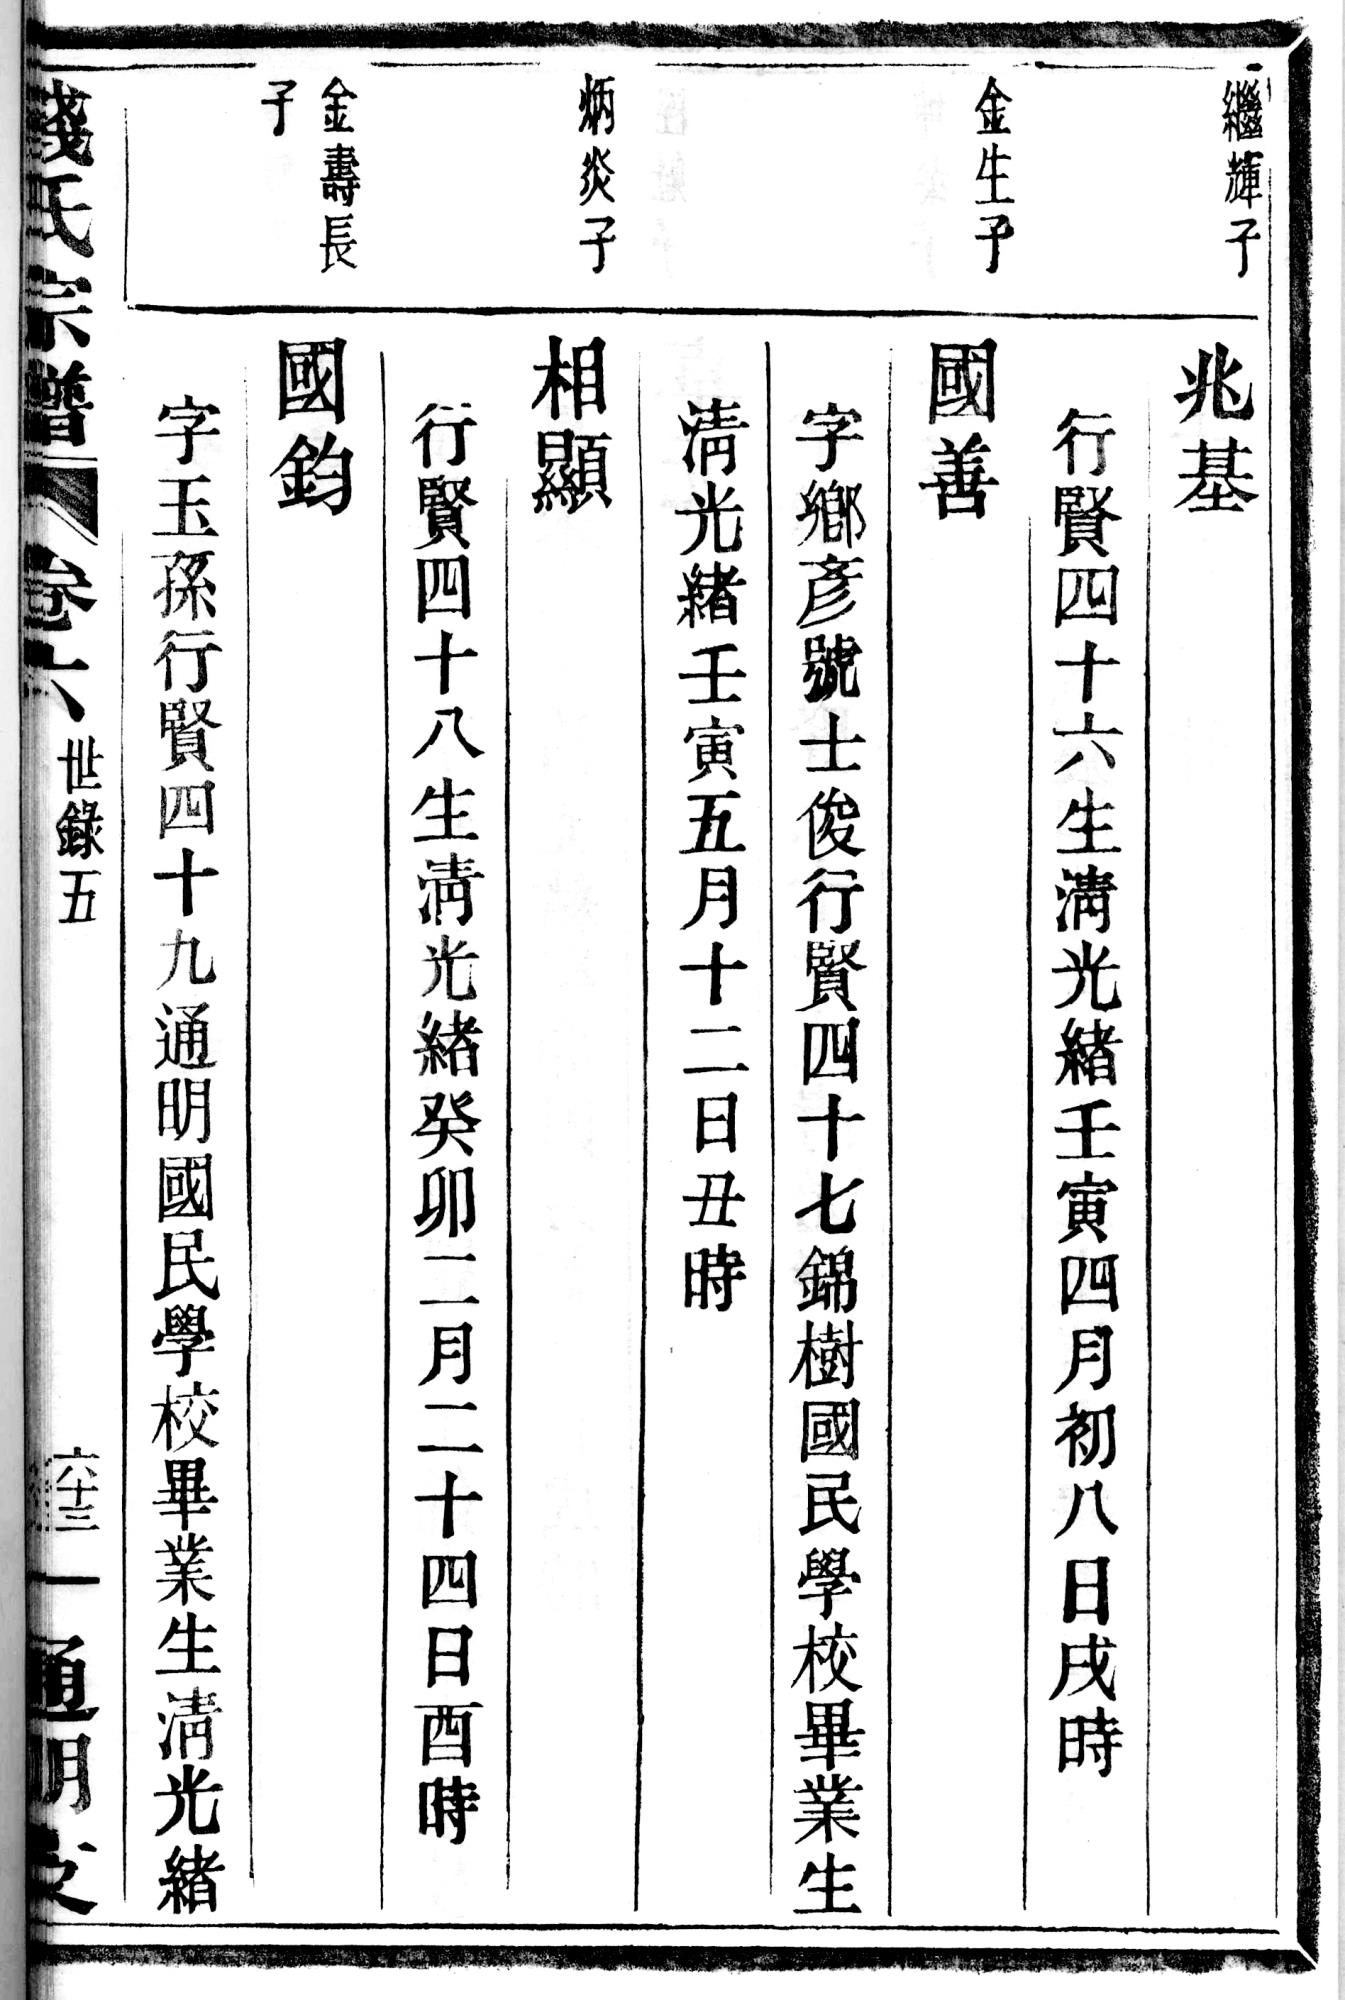 繼輝子
兆基
行賢四十六生清光緒壬寅四月初八日戌時
金生子
國善
字鄉彥號士俊行賢四十七錦樹國民學校畢業生
清光緒壬寅五月十二日丑時
炳炎子
相顯
行賢四十八生清光緒癸卯二月二十四日酉時
金壽長
子
國鈞
字玉孫行賢四十九通明國民學校畢業生清光緒
錢氏宗譜
卷六
世錄五
六十三
通明